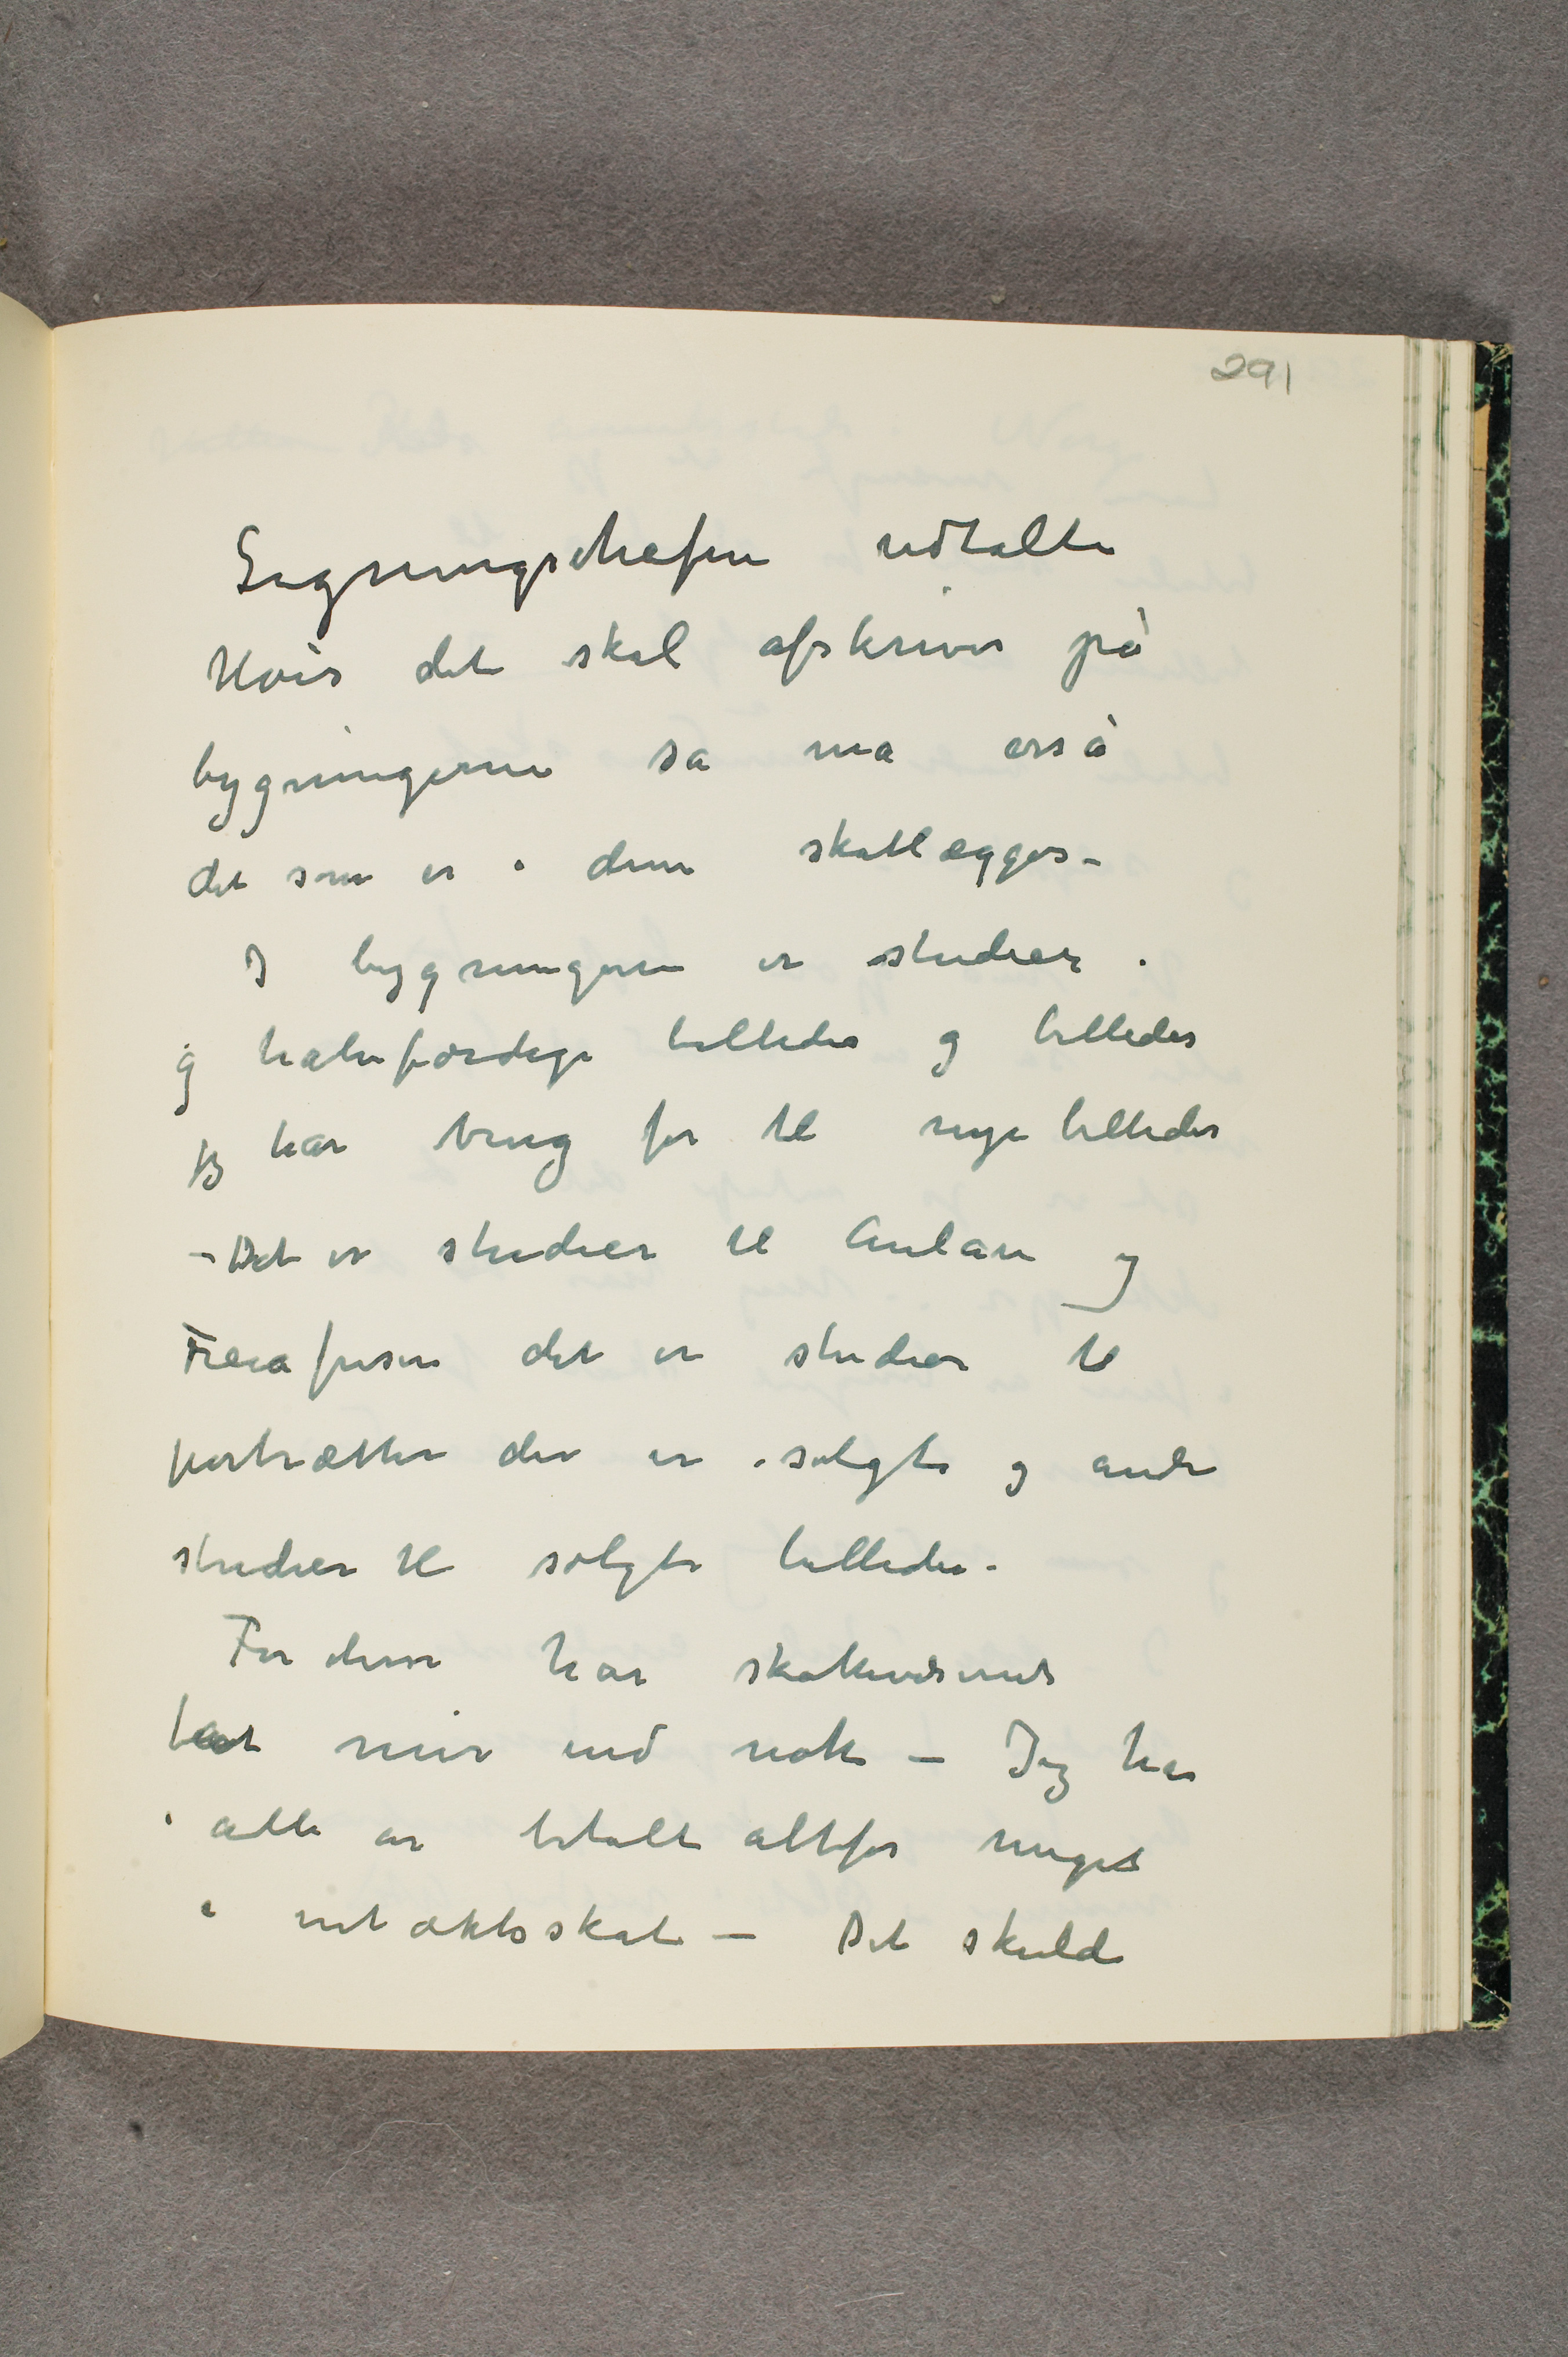 291
Ligningschefen udtalte
Hvis det skal afskrives på
bygningerne så må også
det som er i dem skatlægges –
I bygningerne er studier
og halvfærdige billeder og billeder
jeg har brug for til nye billeder
– Det er studier til Aulaen og
Freiafrisen det er studier til
portrætter der er solgte og andre
studier til solgte billeder.
For disse har skattevæsenet
tat mer end nok – Jeg har
i alle år betalt altfor meget
i intæktsskat – Det skulde